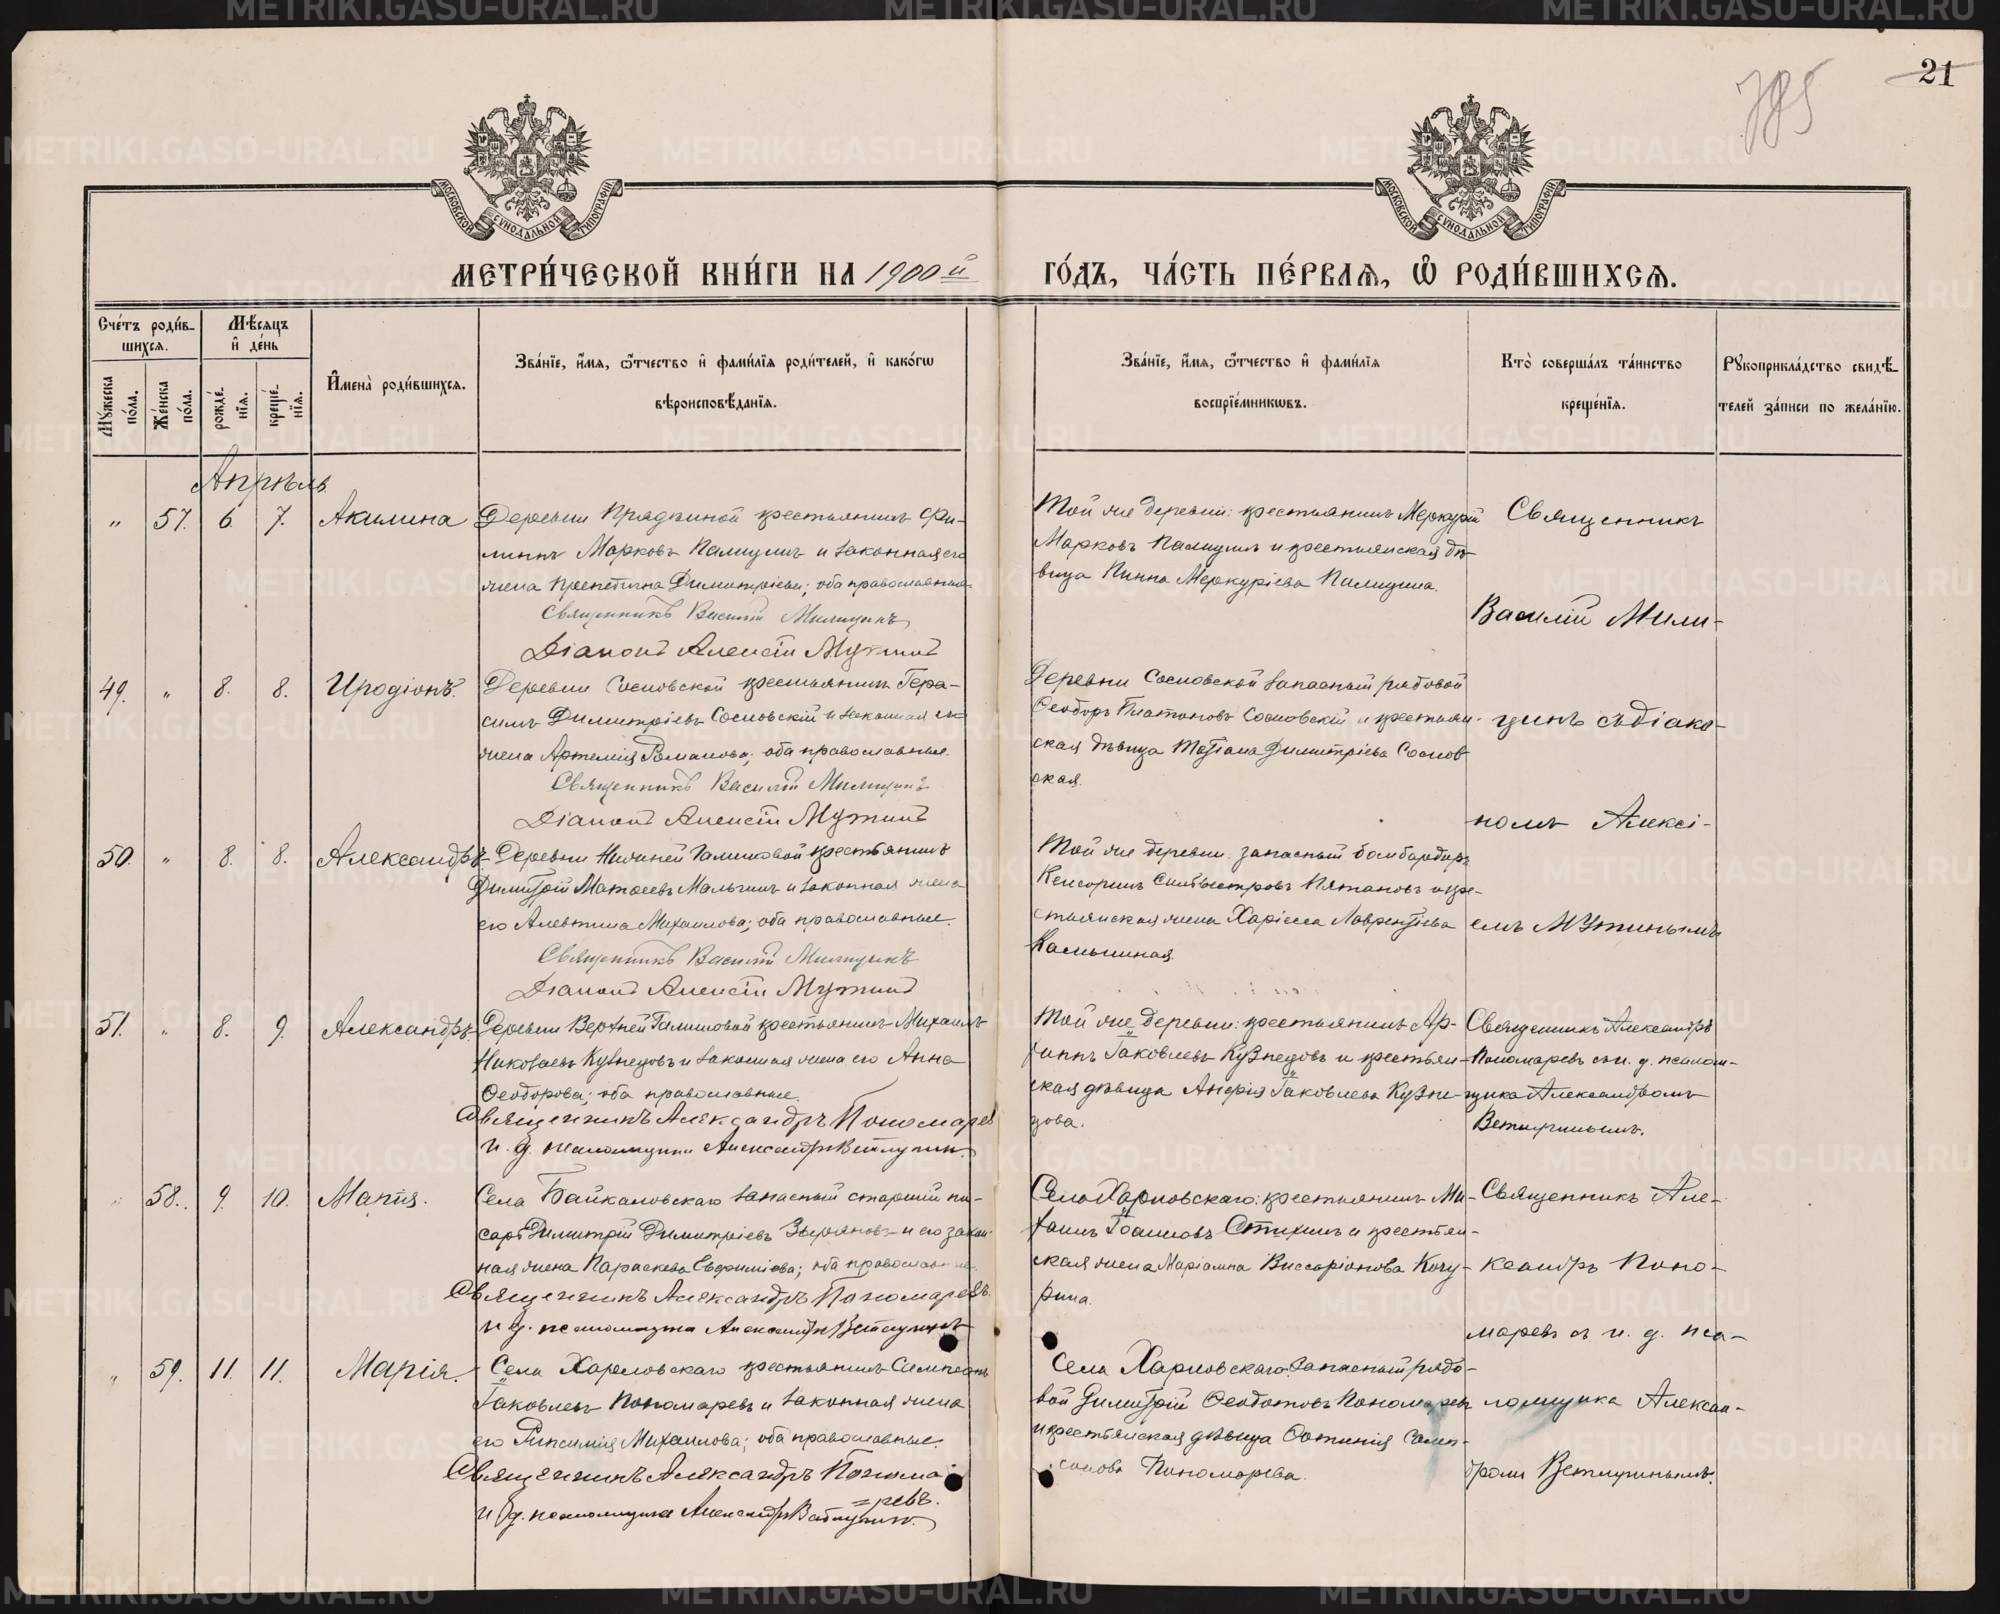 21
785
МОСКОВСКОЙ СУНОДАЛЬНОЙ ТИПОГРАФІИ
МОСКОВСКОЙ СУНОДАЛЬНОЙ ТИПОГРАФІИ
МЕТРИ́ЧЕСКОЙ КНИ́ГИ НА 1900й ГО́ДЪ, ЧА́СТЬ ПЕ́РВАѦ, Ѡ҆ РОДИ́ВШИХСѦ.
Сче́тъ роди́в-
шихсѧ.
Мѣ́сѧцъ
и҆ де́нь
Мꙋ́жеска по́ла.
Же́нска по́ла.
рожде́нїѧ.
креще́нїѧ.
И҆мена̀ роди́вшихсѧ.
Зва́нїе, и҆́мѧ, ѻ҆́тчество и҆ фами́лїѧ роди́телей, и҆ како́гѡ
вѣроисповѣ́данїѧ.
Зва́нїе, и҆́мѧ, ѻ҆́тчество и҆ фами́лїѧ
воспрїе́мникѡвъ.
Кто̀ соверша́лъ та́инство
креще́нїѧ.
Рꙋкоприкла́дство свидѣ́-
телей за́писи по жела́нїю.
Апрѣль
" 57. 6. 7. Акилина
Деревни Прядкиной крестьянинъ Фи-
липпъ Марковъ Палицинъ и законная его
жена Препетина Димитріева; оба православные
Священникъ Василій Милицынъ
Діаконъ Алексій Мутинъ
Той же деревни: крестьянинъ Меркурій
Марковъ Палицинъ и крестьянская дѣ-
вица Пинна Меркуріева Палицина.
Священникъ
Василій Мили-
49. " 8. 8. Иродіонъ.
Деревни Сосновской крестьянинъ Гера-
симъ Димитріевъ Сосновскій и законная его
жена Артемія Романова; оба православные.
Священникъ Василій Милицынъ
Діаконъ Алексій Мутинъ
Деревни Сосновской запасный рядовой
Ѳеодоръ Платоновъ Сосновскій и крестьян-
ская дѣвица Татіана Димитріева Соснов
ская.
цинъ съ діако-
номъ Алексі-
50. " 8. 8. Александръ
Деревни Нижней Галишовой крестьянинъ
Димитрій Матѳеевъ Мальгинъ и законная жена
его Алевтина Михаилова; оба православные.
Священникъ Василій Милицынъ
Діаконъ Алексій Мутинъ
Той же деревни запасный бомбардиръ
Кенсоринъ Силвестровъ Пятановъ и кре-
стьянская жена Харіесса Лаврентіева
емъ Мутинымъ
51. " 8. 9. Александръ
Деревни Верхней Галишовой крестьянинъ Михаилъ
Николаевъ Кузнецовъ и законная жена его Анна
Ѳеодорова; оба православные.
Священникъ Александръ Пономарев
И. д. псаломщика Александръ Ветлугинъ.
Той же деревни: крестьянинъ Ар-
хиппъ Іаковлевъ Кузнецовъ и крестьян-
ская дѣвица Анфія Іаковлева Кузне-
цова.
Священникъ Александръ
Пономаревъ съ и. д. псалом-
щика Александромъ
Ветлугинымъ.
" 58. 9. 10. Марія.
Села Байкаловскаго запасный старшій пи-
сарь Димитрій Димитріевъ Зыряновъ и его закон-
ная жена Параскева Евфиміева; оба православные.
Священникъ Александръ Пономаревъ.
И. д. псаломщика Александръ Ветлугинъ
Села Харловскаго: крестьянинъ Ми-
хаилъ Іоанновъ Стихинъ и крестьян-
ская жена Маріамна Виссаріонова Кочу-
рина.
Священникъ Але-
ксандръ Поно-
маревъ съ и. д. пса-
" 59. 11. 11. Марія.
Села Харловскаго крестьянинъ Сампсонъ
Іаковлевъ Пономаревъ и законная жена
его Рипсимія Михаилова; оба православные.
Священникъ Александръ Понома
=ревъ.
И. д. псаломщика Александръ Ветлугинъ.
Села Харловскаго: запасный рядо-
вой Димитрій Ѳеодотовъ Пономаревъ
и крестьянская дѣвица Фотинія Самп-
сонова Пономарева.
ломщика Алексан-
дромъ Ветлугинымъ.